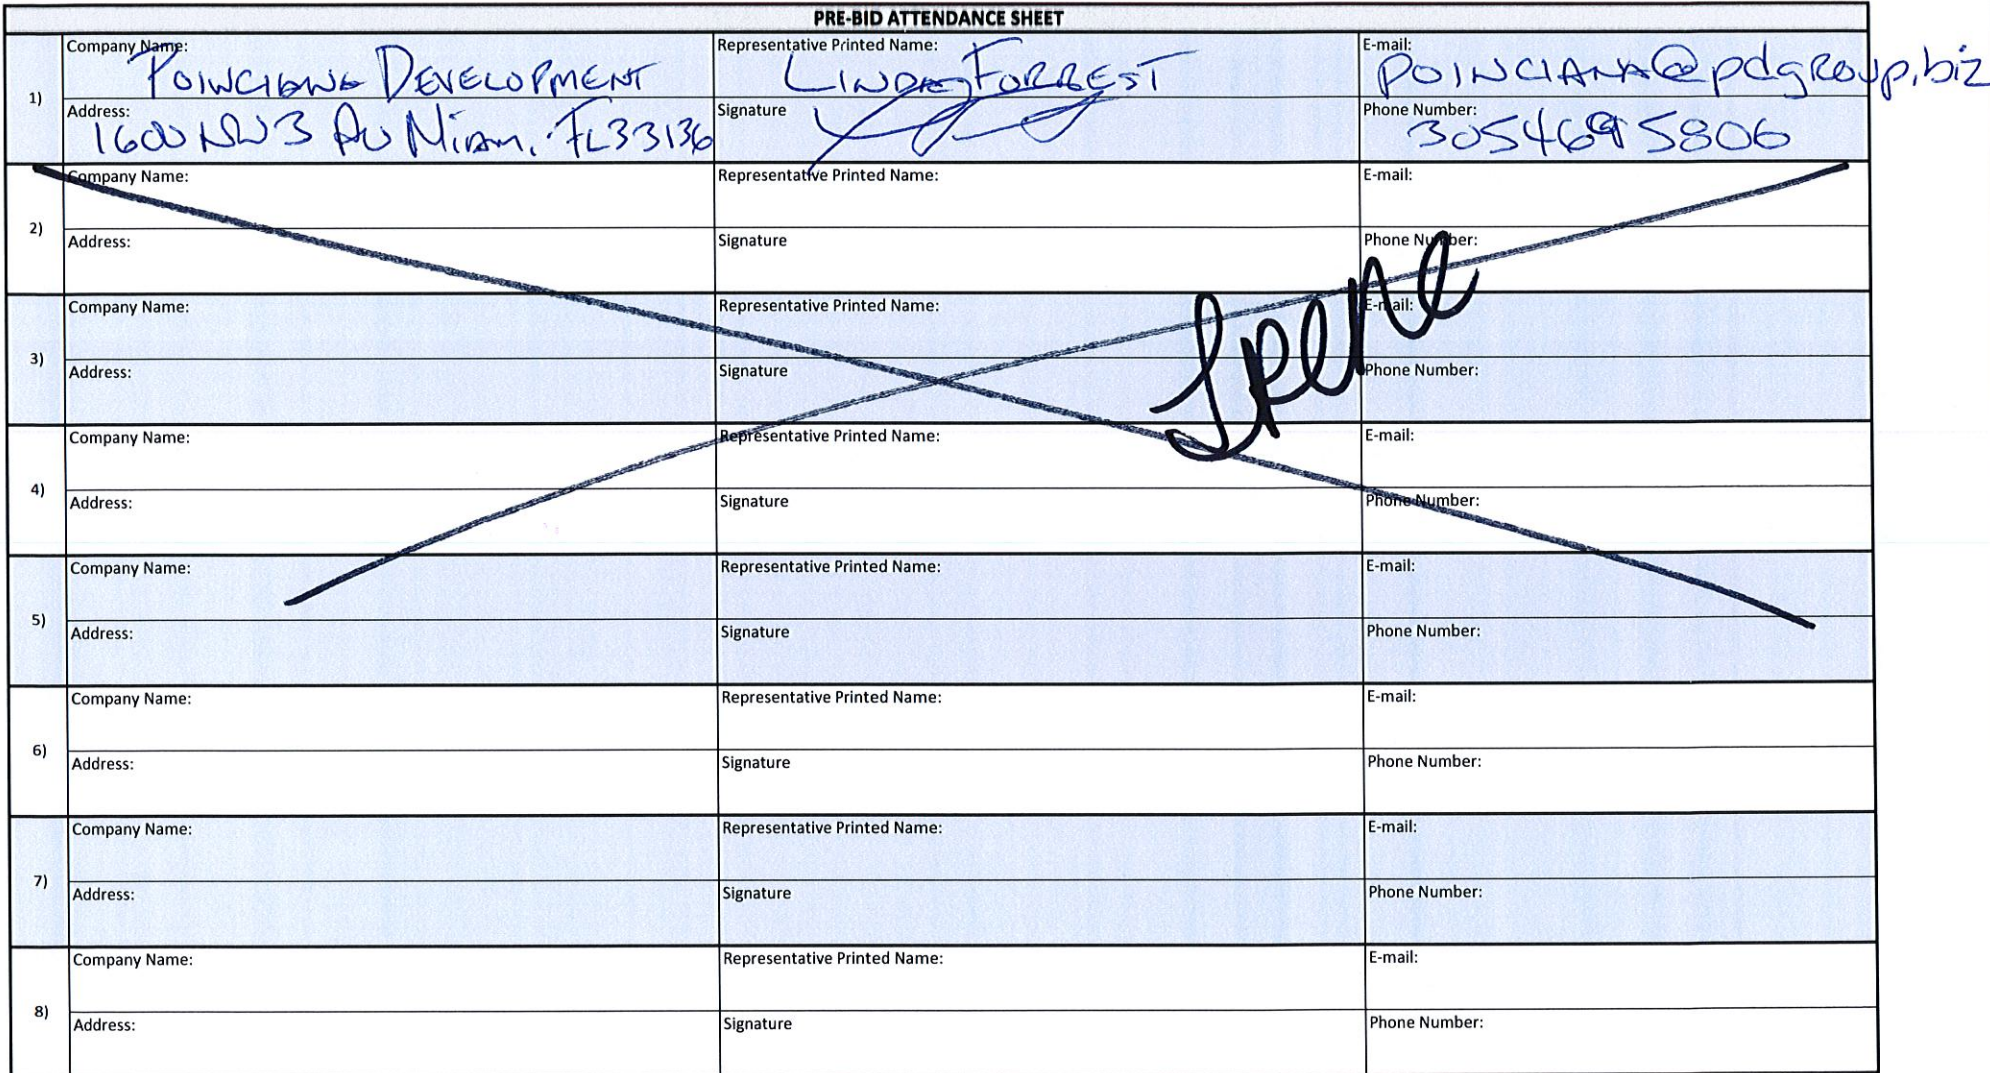 PRE-BID ATTENDANCE SHEET
Company Name: Representative Printed Name: E-mail:
POINCIANA DEVELOPMENT LINDA FORREST POINCIANA@pdgROUp.biz
1)
Address: Signature Phone Number:
1600 NW 3 AV Miami, FL 33136 305 5806
Company Name: Representative Printed Name: E-mail:
2)
Address: Signature Phone Number:
Company Name: Representative Printed Name: E-mail:
3)
Address: Signature Phone Number:
Company Name: Representative Printed Name: E-mail:
4)
Address: Signature Phone Number:
Company Name: Representative Printed Name: E-mail:
5)
Address: Signature Phone Number:
Company Name: Representative Printed Name: E-mail:
6)
Address: Signature Phone Number:
Company Name: Representative Printed Name: E-mail:
7)
Address: Signature Phone Number:
Company Name: Representative Printed Name: E-mail:
8)
Address: Signature Phone Number: